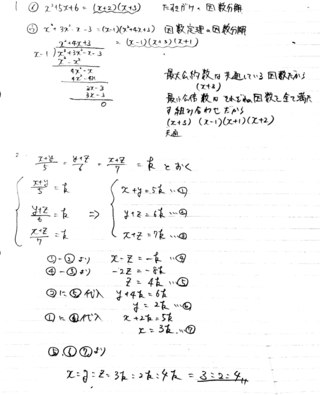 1 ① x²+5x+6 = (x+2)(x+3) たすきがけの因数分解
② x³+3x²-x-3 = (x-1)(x²+4x+3) 因数定理の因数分解
= (x-1)(x+3)(x+1)
x²+4x+3
x-1 x³+3x²-x-3
x³-x²
4x²-x
4x²-4x
3x-3
3x-3
0
最大公約数は共通している因数だから
(x+3)
最小公倍数はそれぞれの因数を全て満たす
組み合わせだから
(x+3)(x-1)(x+1)(x+2)
共通
2 x+y/5 = y+z/6 = x+z/7 = k とおく
x+y/5 = k
y+z/6 = k ⇒
x+z/7 = k
x+y=5k…①
y+z=6k…②
x+z=7k…③
①-②より x-z=-k…④
④-③より -2z=-8k
z=4k…⑤
②に⑤代入 y+4k=6k
y=2k…⑥
①に⑥代入 x+2k=5k
x=3k…⑦
⑤⑥⑦より
x:y:z=3k:2k:4k=3:2:4